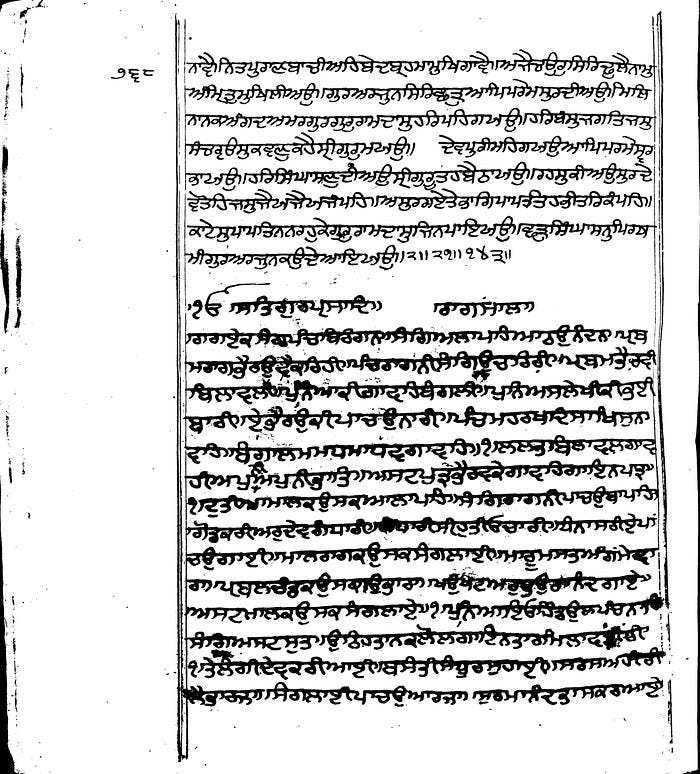 ੭੬੮
ਨਾਵੈ॥ਨਿਤਪੁਰਾਣਬਾਚੀਅਹਿਬੇਦਬ੍ਰਹਮਾਮੁਖਿਗਾਵੈ॥ਅਜੈਚਉਰੁਸਿਰਿਢੁਲੈਨਾਮੁ
ਅੰਮ੍ਰਿਤੁਮੁਖਿਲੀਅਉ॥ਗੁਰਅਰਜੁਨਸਿਰਿਛਤ੍ਰੁਆਪਿਪਰਮੇਸੁਰਦੀਅਉ॥ਮਿਲਿ
ਨਾਨਕਅੰਗਦਅਮਰਗੁਰਗੁਰੁਰਾਮਦਾਸੁਹਰਿਪਹਿਗਯਉ॥ਹਰਿਬੰਸੁਜਗਤਿਜਸੁ
ਸੰਚਰ੍ਯਉਸੁਕਵਣੁਕਹੈਸ੍ਰੀਗੁਰੁਮੁਯਉ॥੧॥ ਦੇਵਪੁਰੀਮਹਿਗਯਉਆਪਿਪਰਮੇਸ੍ਵਰ
ਭਾਯਉ॥ਹਰਿਸਿੰਘਾਸਣੁਦੀਅਉਸ੍ਰੀਗੁਰੁਤਹਬੈਠਾਯਉ॥ਰਹਸੁਕੀਅਉਸੁਰਦੇ
ਵਤੋਹਿਜਸੁਜੈਅਜੈਅਜੰਪਹਿ॥ਅਸੁਰਗਏਤੇਭਾਗਿਪਾਪਤਿਹਭੀਤਰਿਕੰਪਹਿ॥
ਕਾਟੇਸੁਪਾਪਤਿਨਨਰਹੁਕੇਗੁਰੁਰਾਮਦਾਸੁਜਿਨਪਾਇਅਉ॥ਛਤ੍ਰੁਸਿੰਘਾਸਨੁਪਿਰਥ
ਮੀਗੁਰਅਰਜੁਨਕਉਦੇਆਇਅਉ॥੨॥੨੧॥੧੪੩॥
ੴ ਸਤਿਗੁਰਪ੍ਰਸਾਦਿ॥ ਰਾਗਮਾਲਾ
ਰਾਗਏਕਸੰਗਿਪੰਚਬਰੰਗਨ॥ਸੰਗਿਅਲਾਪਹਿਆਠਉਨੰਦਨ॥ਪ੍ਰਥ
ਮਰਾਗਭੈਰਉਵੈਕਰਹੀ॥ਪੰਚਰਾਗਨੀਸੰਗਿਉਚਰਹੀ॥ਪ੍ਰਥਮਭੈਰਵੀ
ਬਿਲਾਵਲੀ॥ਪੁੰਨਿਆਕੀਗਾਵਹਿਬੰਗਲੀ॥ਪੁਨਿਅਸਲੇਖੀਕੀਭਈ
ਬਾਰੀ॥ਏਭੈਰਉਕੀਪਾਚਉਨਾਰੀ॥ਪੰਚਮਹਰਖਦਿਸਾਖਸੁਨਾ
ਵਹਿ॥ਬੰਗਾਲਮਮਧਮਾਧਵਗਾਵਹਿ॥੧॥ਲਲਤਬਿਲਾਵਲਗਾਵ
ਹੀਅਪੁਨੀਅਪੁਨੀਭਾਂਤਿ॥ਅਸਟਪੁਤ੍ਰਭੈਰਵਕੇਗਾਵਹਿਗਾਇਨਪਾਤ੍ਰ॥
੧॥ਦੁਤੀਆਮਾਲਕਉਸਕਆਲਾਪਹਿ॥ਸੰਗਿਰਾਗਨੀਪਾਚਉਥਾਪਹਿ॥
ਗੋਂਡਕਰੀਅਰੁਦੇਵਗੰਧਾਰੀ॥ਗੰਧਾਰੀਸੀਹੁਤੀਉਚਾਰੀ॥ਧਨਾਸਰੀਏਪਾਂ
ਚਉਗਾਈ॥ਮਾਲਰਾਗਕਉਸਕਸੰਗਲਾਈ॥ਮਾਰੂਮਸਤਅੰਗਮੇਵਾ
ਰਾ॥ਪ੍ਰਬਲਚੰਡਕਉਸਕਉਭਾਰਾ॥ਖਉਖਟਅਰੁਭਉਰਾਨੰਦਗਾਏ॥
ਅਸਟਮਾਲਕਉਸਕਸੰਗਲਾਏ॥੧॥ਪੁਨਿਆਇਓਹਿੰਡੋਲੁਪੰਚਨਾਰਿ
ਸੰਗਿਅਸਟਸੁਤ॥ਉਠਹਿਤਾਨਕਲੋਲਗਾਇਨਤਾਰਮਿਲਾਵਹੀ
੧॥ਤੇਲੰਗੀਦੇਵਕਰੀਆਈ॥ਬਸੰਤੀਸੰਧੂਰਸੁਹਾਈ॥ਸਰਸਅਹੀਰੀ
ਲੈਭਾਰਜਾ॥ਸੰਗਿਲਾਈਪਾਂਚਉਆਰਜਾ॥ਸੁਰਮਾਨੰਦਭਾਸਕਰਆਏ